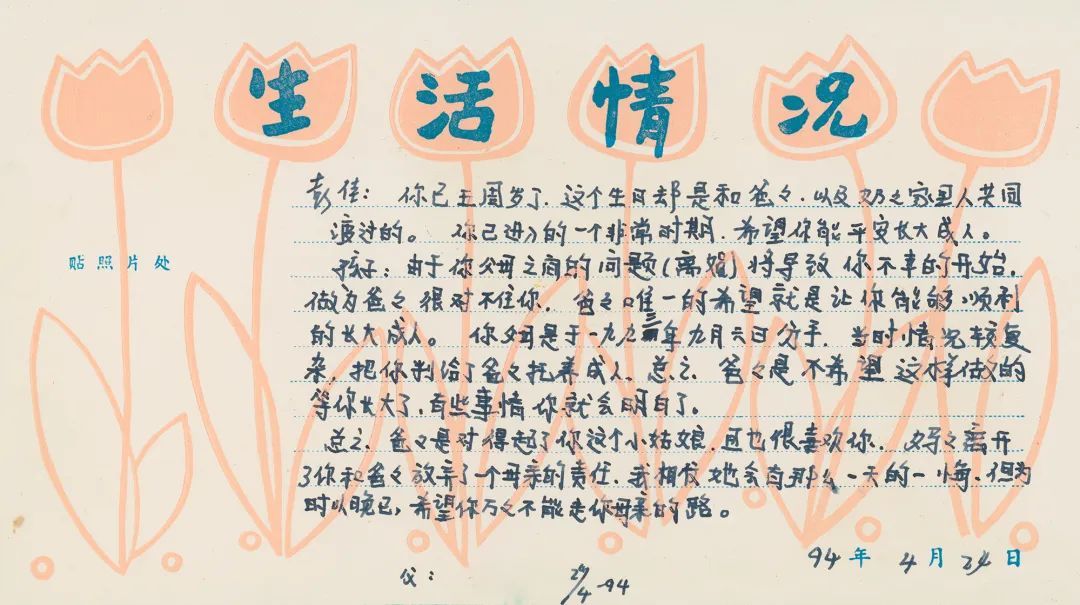 生活情况
彭佳：你已三周岁了，这个生日却是和爸々，以及奶々家里人共同
渡过的。你已进入的一个非常时期，希望你能平安长大成人。
贴照片处
孩子：由于你父母之间的问题(离婚)将导致你不幸的开始，
做为爸々很对不住你，爸々唯一的希望就是让你能够顺利
的长大成人。你妈是于一九九三年九月六日分手，当时情况较复
杂，把你判给了爸々抚养成人，总之，爸々是不希望这样做的
等你长大了，有些事情你就会明白了。
总之，爸々是对得起了你这个小姑娘，且也很喜欢你，妈々离开
了你和爸々放弃了一个母亲的责任，我相信她会有那么一天的一悔，但为
时以晚已，希望你万々不能走你母亲的路。
94年4月24日
父：
24/4 94